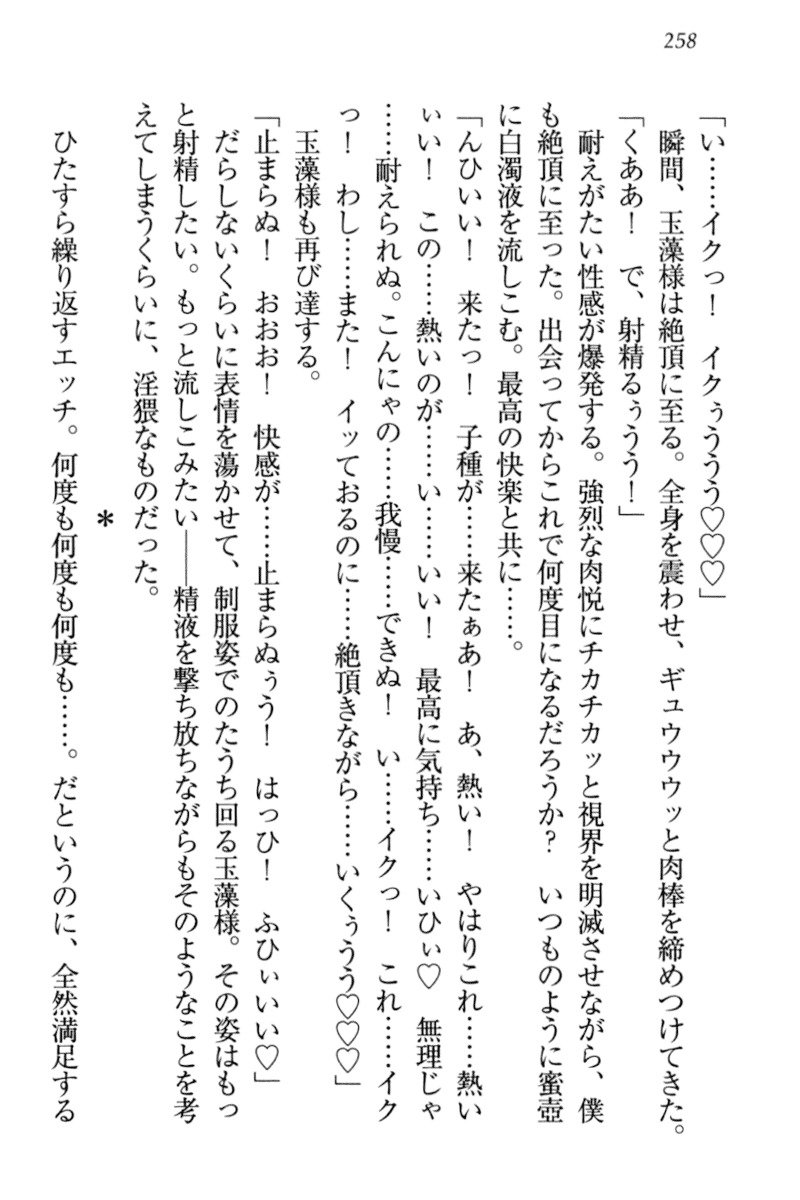 258
「い……イクっ！　イクぅううう♡♡♡」
　瞬間、玉藻様は絶頂に至る。全身を震わせ、ギュウウウッと肉棒を締めつけてきた。
「くああ！　で、射精るぅうう！」
　耐えがたい性感が爆発する。強烈な肉悦にチカチカッと視界を明滅させながら、僕
も絶頂に至った。出会ってからこれで何度目になるだろうか？　いつものように蜜壺
に白濁液を流しこむ。最高の快楽と共に……。
「んひいい！　来たっ！　子種が……来たぁあ！　あ、熱い！　やはりこれ……熱い
ぃい！　この……熱いのが……い……いい！　最高に気持ち……いひぃ♡　無理じゃ
……耐えられぬ。こんにゃの……我慢……できぬ！　い……イクっ！　これ……イク
っ！　わし……また！　イッておるのに……絶頂きながら……いくぅうう♡♡♡」
　玉藻様も再び達する。
「止まらぬ！　おおお！　快感が……止まらぬぅう！　はっひ！　ふひぃいい♡」
　だらしないくらいに表情を蕩かせて、制服姿でのたうち回る玉藻様。その姿はもっ
と射精したい。もっと流しこみたい――精液を撃ち放ちながらもそのようなことを考
えてしまうくらいに、淫猥なものだった。
＊
　ひたすら繰り返すエッチ。何度も何度も何度も……。だというのに、全然満足する